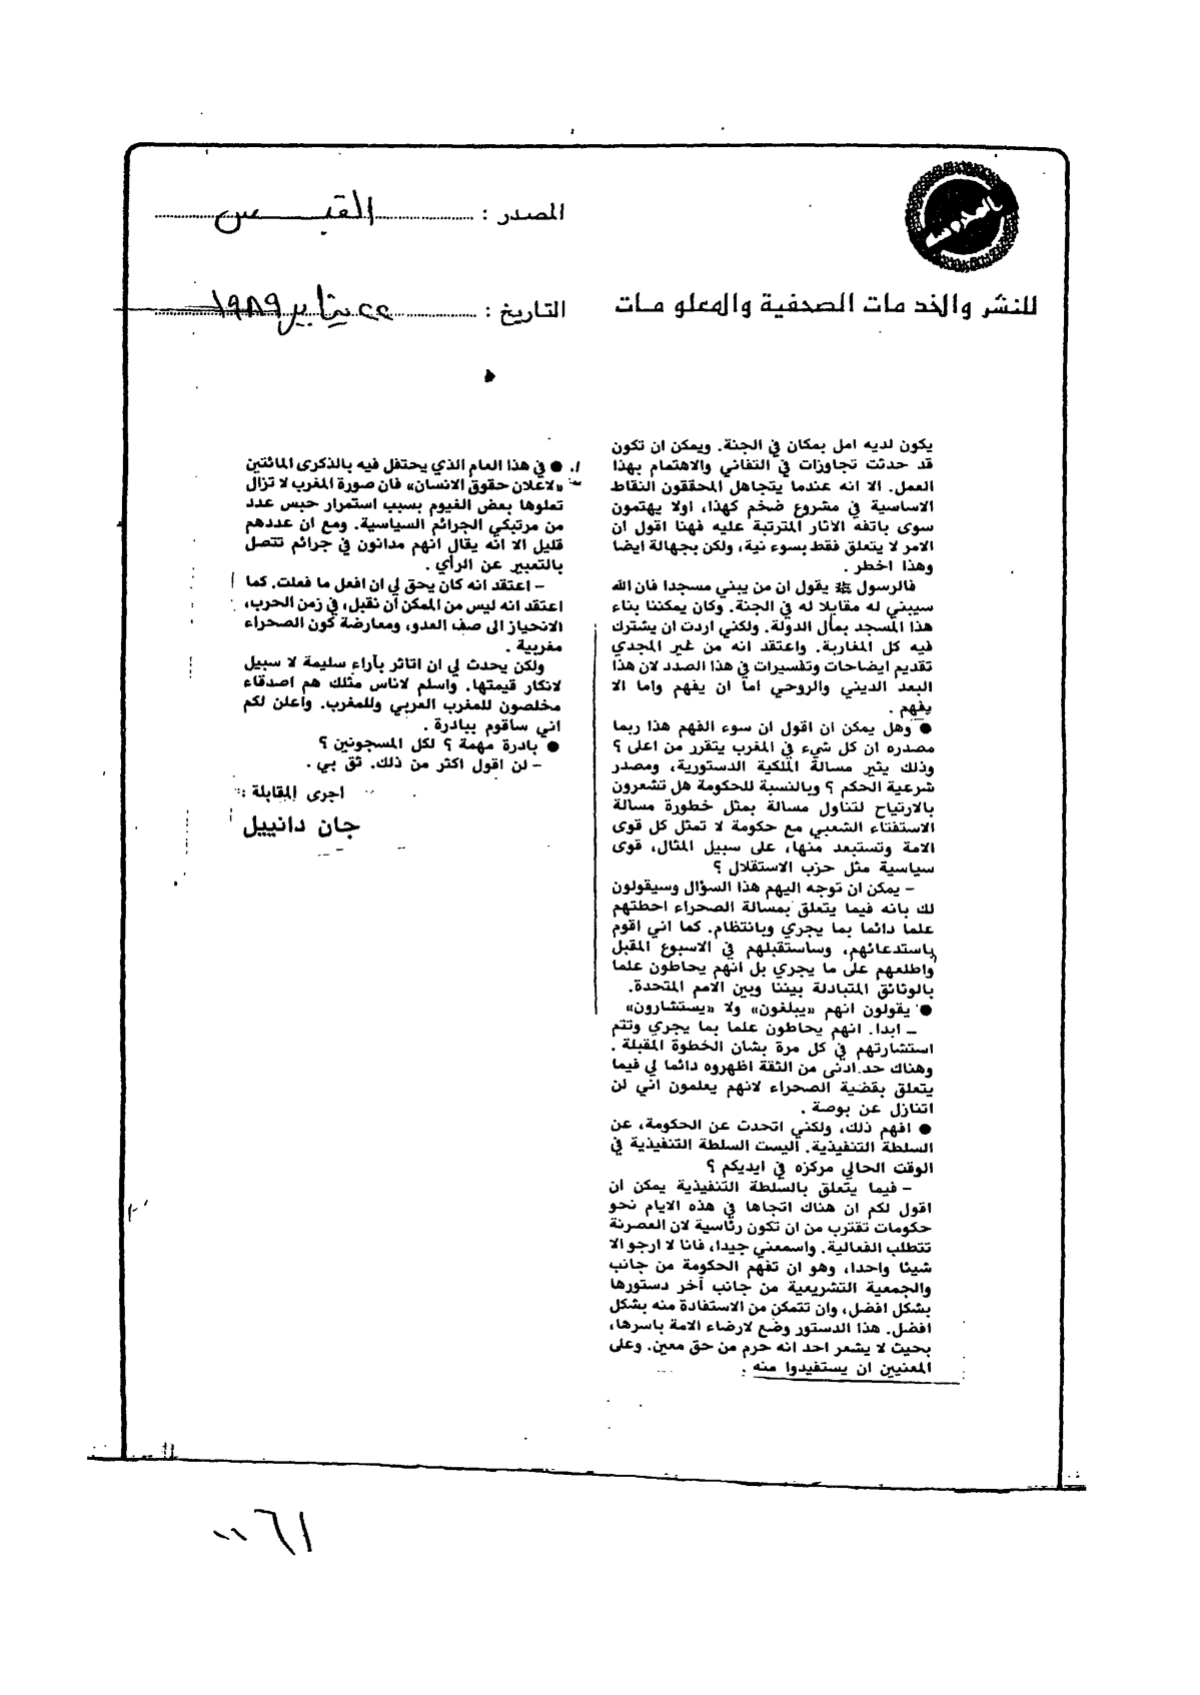 المصدر : القبس
للنشر والخدمات الصحفية والمعلومات
التاريخ : ٢٢ يناير ١٩٨٩
يكون لديه امل بمكان في الجنة. ويمكن ان تكون
قد حدثت تجاوزات في التفاني والاهتمام بهذا
العمل. الا انه عندما يتجاهل المحققون النقاط
الاساسية في مشروع ضخم كهذا، اولا يهتمون
سوى باتفه الاثار المترتبة عليه فهنا اقول ان
الامر لا يتعلق فقط بسوء نية، ولكن بجهالة ايضا
وهذا اخطر .
فالرسول ﷺ يقول ان من يبني مسجدا فان الله
سيبني له مقابلا له في الجنة. وكان يمكننا بناء
هذا المسجد بمال الدولة. ولكني اردت ان يشترك
فيه كل المغاربة. واعتقد انه من غير المجدي
تقديم ايضاحات وتفسيرات في هذا الصدد لان هذا
البعد الديني والروحي اما ان يفهم واما الا
يفهم .
● وهل يمكن ان اقول ان سوء الفهم هذا ربما
مصدره ان كل شيء في المغرب يتقرر من اعلى ؟
وذلك يثير مسالة الملكية الدستورية، ومصدر
شرعية الحكم ؟ وبالنسبة للحكومة هل تشعرون
بالارتياح لتناول مسالة بمثل خطورة مسالة
الاستفتاء الشعبي مع حكومة لا تمثل كل قوى
الامة وتستبعد منها، على سبيل المثال، قوى
سياسية مثل حزب الاستقلال ؟
– يمكن ان توجه اليهم هذا السؤال وسيقولون
لك بانه فيما يتعلق بمسالة الصحراء احطتهم
علما دائما بما يجري وبانتظام. كما اني اقوم
باستدعائهم، وساستقبلهم في الاسبوع المقبل
واطلعهم على ما يجري بل انهم يحاطون علما
بالوثائق المتبادلة بيننا وبين الامم المتحدة.
● يقولون انهم «يبلغون» ولا «يستشارون»
– ابدا. انهم يحاطون علما بما يجري وتتم
استشارتهم في كل مرة بشان الخطوة المقبلة .
وهناك حد ادنى من الثقة اظهروه دائما لي فيما
يتعلق بقضية الصحراء لانهم يعلمون اني لن
اتنازل عن بوصة .
● افهم ذلك، ولكني اتحدث عن الحكومة، عن
السلطة التنفيذية. اليست السلطة التنفيذية في
الوقت الحالي مركزه في ايديكم ؟
– فيما يتعلق بالسلطة التنفيذية يمكن ان
اقول لكم ان هناك اتجاها في هذه الايام نحو
حكومات تقترب من ان تكون رئاسية لان العصرنة
تتطلب الفعالية. واسمعني جيدا، فانا لا ارجو الا
شيئا واحدا، وهو ان تفهم الحكومة من جانب
والجمعية التشريعية من جانب آخر دستورها
بشكل افضل، وان تتمكن من الاستفادة منه بشكل
افضل. هذا الدستور وضع لارضاء الامة باسرها،
بحيث لا يشعر احد انه حرم من حق معين. وعلى
المعنيين ان يستفيدوا منه .
● في هذا العام الذي يحتفل فيه بالذكرى المائتين
«لاعلان حقوق الانسان» فان صورة المغرب لا تزال
تعلوها بعض الغيوم بسبب استمرار حبس عدد
من مرتبكي الجرائم السياسية. ومع ان عددهم
قليل الا انه يقال انهم مدانون في جرائم تتصل
بالتعبير عن الرأي .
– اعتقد انه كان يحق لي ان افعل ما فعلت. كما
اعتقد انه ليس من الممكن أن نقبل، في زمن الحرب،
الانحياز الى صف العدو، ومعارضة كون الصحراء
مغربية .
ولكن يحدث لي ان اتاثر بآراء سليمة لا سبيل
لانكار قيمتها. واسلم لاناس مثلك هم اصدقاء
مخلصون للمغرب العربي وللمغرب. واعلن لكم
اني ساقوم ببادرة .
● بادرة مهمة ؟ لكل المسجونين ؟
– لن اقول اكثر من ذلك. ثق بي .
اجرى المقابلة :
جان دانييل